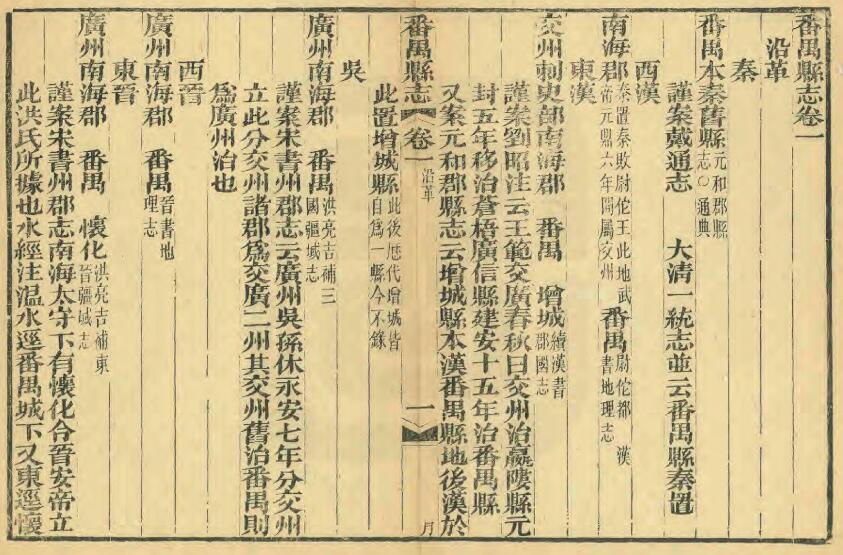 番禺縣志卷一
沿革
秦
番禺本秦舊縣元和郡縣志○通典
謹案戴通志 大清一統志並云番禺縣秦置
西漢
南海郡秦置秦敗尉佗王此地武帝元鼎六年開屬交州 番禺尉佗都 漢書地理志
東漢
交州刺史部南海郡 番禺 增城續漢書郡國志
謹案劉昭注云王範交廣春秋曰交州治羸𨻻縣元
封五年移治蒼梧廣信縣建安十五年治番禺縣
又案元和郡縣志云增城縣本漢番禺縣地後漢於
番禺縣志 卷一 沿革 一 月
此置增城縣此後歷代增城皆自爲一縣今不錄
吳
廣州南海郡 番禺洪亮吉補三國疆域志
謹案宋書州郡志云廣州吳孫休永安七年分交州
立此分交州諸郡爲交廣二州其交州舊治番禺則
爲廣州治也
西晉
廣州南海郡 番禺晉書地理志
東晉
廣州南海郡 番禺 懷化洪亮吉補東晉疆域志
謹案宋書州郡志南海太守下有懷化令晉安帝立
此洪氏所據也水經注溫水逕番禺城下又東逕懷